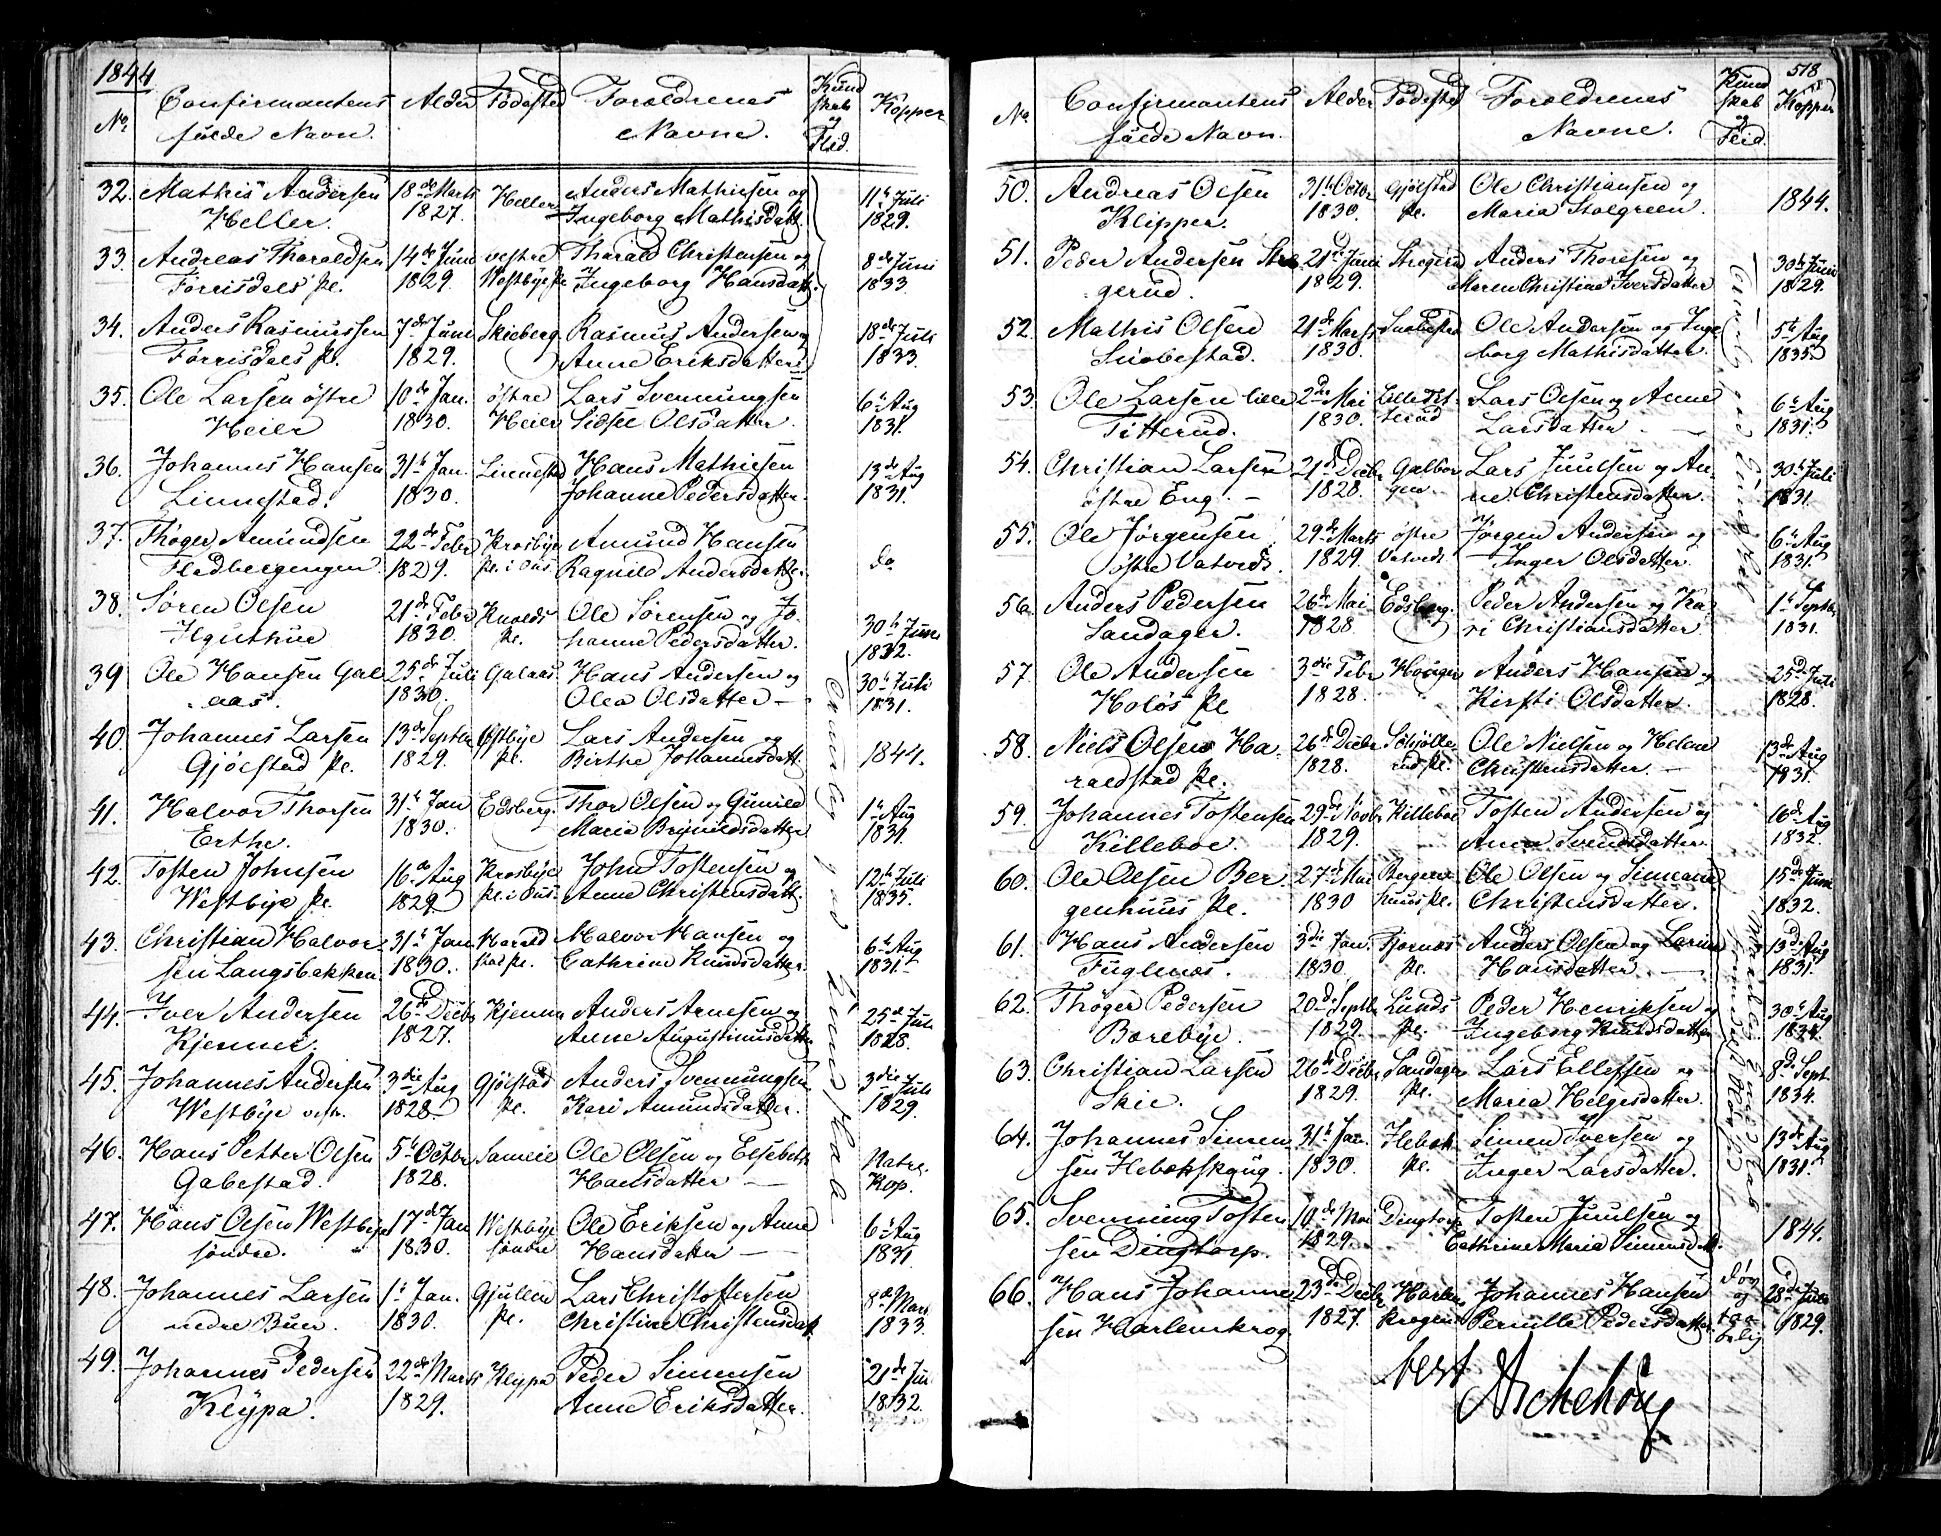 1844
No. Confirmantens fulde Navn. Alder Födested Forældrenes Navne. Kundskab og Flid. Kopper
32. Mathis Andersen 18de Marts Heller Anders Mathiesen og 11te Juli
Heller. 1827. Ingeborg Mathisdatt. 1829.
33. Andreas Tharaldsen 14de Juni vestre Tharald Christensen og 8de Juni
Forrisdals pl. 1829. Westbye pl. Ingeborg Hansdatt. 1833.
34. Anders Rasmussen 7de Juni Skieberg Rasmus Andersen og 18de Juli
Forrisdals pl. 1829. Anne Eriksdatter 1833.
35. Ole Larsen östre 10de Jan. östre Lars Svenningsen 6te Aug
Heier 1830. Heier Sidsel Olsdatter. 1831.
36. Johannes Hansen 31te Jan. Linnestad Hans Mathiesen 13de Aug
Linnestad. 1830. Johanne Pedersdatter. 1831.
37. Thöger Amundsen 22de Febr Krosbye Amund Hansen
Fladbergengen 1829. pl. i Ous. Ragnild Andersdatter. do
38. Sören Olsen 21de Febr Knolds Ole Sörensen og Jo-
1830. pl. hanne Pedersdatter. 30te Juni 1832.
39 Ole Hansen Gal 25de Juli Galaas Hans Andersen og 30te Juli
aas. 1830. Olea Olsdatter – 1831.
40. Johannes Larsen 13de Septbr Østbye Lars Andersen og
Gjölstad pl. 1829. pl. Birthe Johannesdatt. 1844.
41. Halvor Thorsen 31te Jan Edsberg. Thor Olsen og Gunild 1te Aug
Erthe. 1830. Maria Brynildsdatter 1831.
42. Tosten Johnsen 16de Aug Krosbye John Tostensen og 12te Juli
Westbye pl. 1829 pl. i Ous. Anne Christensdatt. 1835.
43. Christian Halvor 31te Jan Harald Halvor Hansen og 6te Aug
sen Langsbakken 1830. stad pl. Cathrine Knudsdatter. 1831.
44. Iver Andersen 26de Decbr Kjenne Anders Arnesen og 25de Juli
Kjenne. 1827. Anne Augustinusdatter 1828.
45. Johannes Andersen 3die Aug Gjölstad Anders Svenningsen 3die Juli
Westbye 1828 pl. Kari Amundsdatter. 1829.
46. Hans Petter Olsen 5te Octbr Sameie Ole Olsen og Elsebeth Natrl.
Gabestad. 1828. Hansdatter — Kop.
47. Hans Olsen Westbye 17de Jan Westbye Ole Eriksen og Anne 6te Aug
söndre. 1830. söndre Hansdatter — 1831
48. Johannes Larsen 1te Jan. Gjullem Lars Christoffersen 8de Mars
nedre Buer. 1830. pl. Christine Christensdatt 1833.
49. Johannes Pedersen 22de Marts Klypa Peder Simensen 21de Juni
Klypa. 1829. Anne Eriksdatter. 1832.
Temmelig god Kundskab
518
No Confirmantens fulde Navn. Alder Födested Forældrenes Navne. Kundskab og Flid. Kopper
50. Andreas Olsen 31te Octbr Gjölstad Ole Christiansen og
Klipper. 1830. pl. Maria Stolgreen. 1844.
51. Peder Andersen Stre 21de Juni Stregerud Anders Thoresen og 30te Juni
gerud. 1829. Maren Christine Iversdatter 1829.
52. Mathis Olsen 21de Marts Snobestad Ole Andersen og Inge 5te Aug
Snobestad. 1830. borg Mathisdatter. 1835
53. Ole Larsen lille 2den Mai Lille Tit- Lars Olsen og Anne 6te Aug
Titterud. 1830. terud Larsdatter — 1831.
54. Christian Larsen 21de Decbr Galbor Lars Juulsen og An- 30te Juli
östre Eng. – 1828. gen ne Christensdatter. 1831.
55. Ole Jörgensen 29de Marts östre Jörgen Andersen og 6te Aug
östre Vatvedt. 1829. Vatvedt Inger Olsdatter. 1831.
56. Anders Pedersen 26de Mai Edsberg. Peder Andersen og Ka- 1te Septbr
Sandager. 1828. ri Christiansdatter. 1831.
57. Ole Andersen 3die Febr Anders Hansen og 25de Juli
Holös pl 1828. Kirsti Olsdatter. 1828.
58. Niels Olsen Ha 26de Decbr Ole Nielsen og Helene 13de Aug
raldstad pl. 1828. rud pl. Christensdatter. — 1831.
59. Johannes Tostensen 29de Novbr Killeboe Tosten Andersen og 16de Aug
Killeboe. 1829. Anne Svendsdatter 1832.
60. Ole Olsen Ber 27de Mai Bergen Ole Olsen og Simeane 15de Juni
genhuus pl. 1830 huus pl. Christensdatter. 1832.
61. Hans Andersen 3die Jan. Tjernæs Anders Olsen og Larine 13de Aug
Fuglenæs. 1830. pl. Hansdatter — 1831.
62. Thöger Pedersen 20de Septbr Lunds Peder Henriksen og 30te Aug
Borebye. 1829. pl. Ingeborg Knudsdatter 1834.
63. Christian Larsen 26de Decbr Sandager Lars Ellefsen og 8de Sept.
Skie. 1829. pl. Maria Helgesdatter. 1834.
64. Johannes Simen 31te Jan. Hebæk Simen Iversen og 13de Aug
sen Hebækskoug. 1830. pl. Inger Larsdatter. 1831.
65. Svenning Tosten 10de Mai Dingtorp Tosten Juulsen og
sen Dingtorp. 1829. Cathrine Maria Simensdatt. 1844.
66. Hans Johanne 23de Decbr Harlem Johannes Hansen döv og 28de Juli
sen Harlemkrog 1827. krogen Pernille Pedersdatter. 1829.
Temmelig god Kundskab
test
Aschehoug